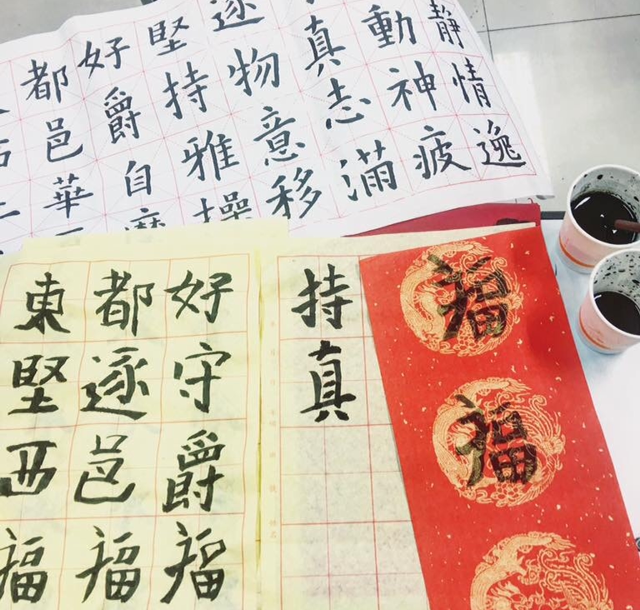 靜情逸
動神疲
真志滿
逐物意移
堅持雅操
好爵自
都邑華
福福
持真
好守爵福
都逐邑福
東堅西福